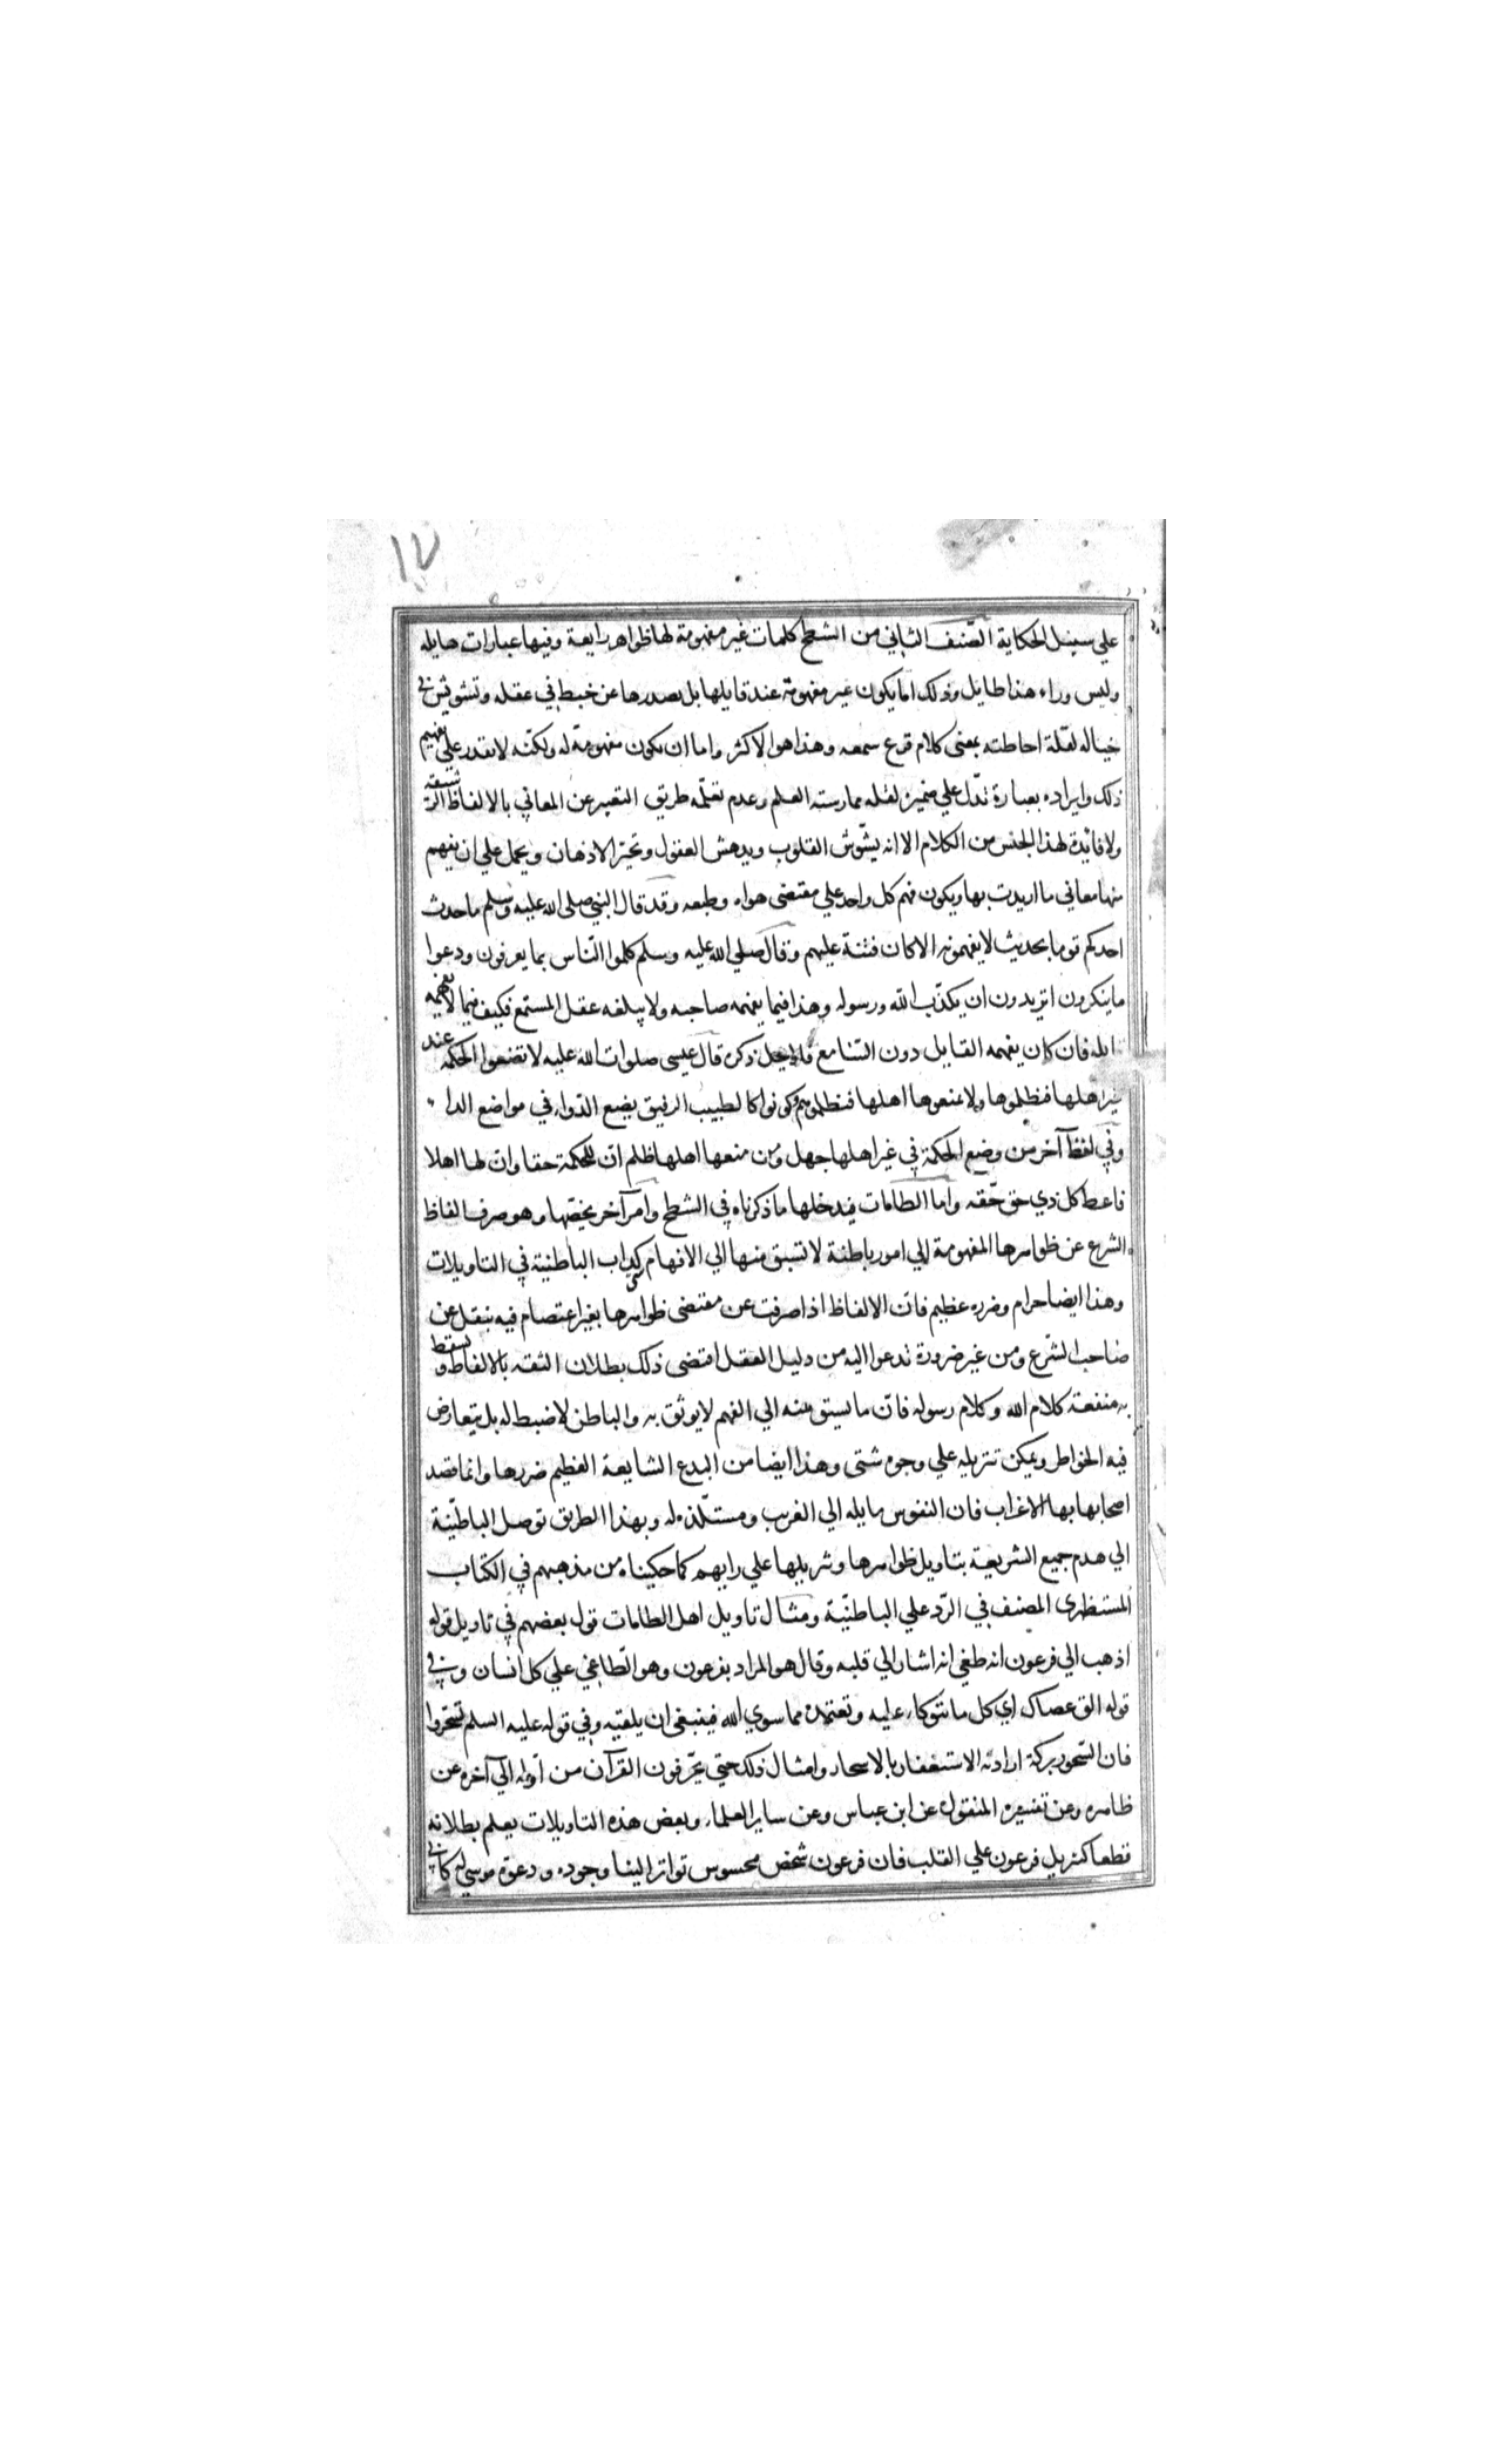 ١٧
علي سبيل الحكاية الصّنف الثاني من الشطح كلمات غير مفهومة لها ظواهر رايعة وفيها عبارات هايله
وليس وراء هذا طايل وذلك اما يكون غير مفهومة عند قايلها بل يصدرها عن خبط في عقله وتشويش في
خياله لقلّة احاطته بمعني كلام قرع سمعه وهذا هو الاكثر واما ان يكون مفهومة له ولكنّه لا يقدر علي تفهيم
ذلك وايراده بعبارة تدّل علي ضميره لقله ممارسته العلم وعدم تعلمّه طريق التعبير عن المعاني بالالفاظ الرشيقه
ولا فائدة لهذا الجنس من الكلام الا انه يشّوش القلوب ويدهش العقول وتحيّر الاذهان ويحمل علي ان يفهم
منها معاني ما اريدت بها ويكون فهم كل واحد علي مقتضي هواه وطبعه وقد قال النبي صلي الله عليه وسلم ما حدث
احدكم قوما بحديث لا يفهمونه الا كان فتنة عليهم وقال صلي الله عليه وسلم كلموا النّاس بما يعرفون ودعوا
ما ينكرون اتريدون ان يكذّب الله ورسوله وهذا فيما يفهمه صاحبه ولا يبلغه عقل المستمع فكيف فيما لا يفهمه
قايله فان كان يفهمه القايل دون السّامع فلا يحل ذكره قال عيسي صلوات الله عليه لا تضعوا الحكمة عند
غير اهلها فتظلموها ولا تمنعوها اهلها فتظلموهم وكونوا كالطبيب الرفيق يضع الدّواء في مواضع الداء
وفي لفظ آخر من وضع الحكمة في غير اهلها جهل ومن منعها اهلها ظلم انّ للحكمة حقا وان لها اهلا
فاعط كل ذي حق حقّه واما الطامات فيدخلها ما ذكرناه في الشطح وامر آخر يخصّها وهو صرف الفاظ
الشرع عن ظواهرها المفهومة الي امور باطنة لا تسبق منها الي الافهام كداب الباطنية في التاويلات
وهذا ايضا حرام وضرره عظيم فانّ الالفاظ اذا صرفت عن مقتضي ظواهرها بغير اعتصام فيه بنقل عن
صاحب الشّرع ومن غير ضرورة تدعوا اليه من دليل العقل اقتضي ذلك بطلان الثقه بالالفاظ وسقط
به منفعة كلام الله وكلام رسوله فانّ ما يسبق منه الي الفهم لا يوثق به والباطن لا ضبط له بل يتعارض
فيه الخواطر ويمكن تنزيله علي وجوه شتي وهذا ايضا من البدع الشايعة العظيم ضررها وانما قصد
اصحابها بها الاغراب فان النفوس مايله الي الغريب ومستلّذه له وبهذا الطريق توصل الباطنيّة
الي هدم جميع الشريعة بتاويل ظواهرها وتنزيلها علي رايهم كما حكيناه من مذهبهم في الكتاب
المستظهري المصنف في الرّد علي الباطنيّة ومثال تاويل اهل الطامات قول بعضهم في تاويل قوله
اذهب الي فرعون انه طغي انه اشار الي قلبه وقال هو المراد بفرعون وهو الطّاغي علي كل انسان وفي
قوله الق عصاك اي كل ما يتوكاء عليه وتعتمده مما سوي الله فينبغي ان يلقيه وفي قوله عليه السلم تسّحروا
فان السّحور بركة اراد به الاستغفار بالاسحار وامثال ذلك حتي يحّرفون القرآن من اوله الي آخره عن
ظاهره وعن تفسيره المنقول عن ابن عباس وعن ساير العلماء وبعض هذه التاويلات يعلم بطلانه
قطعا كتنزيل فرعون علي القلب فان فرعون شخص محسوس تواتر الينا وجوده ودعوة موسي له